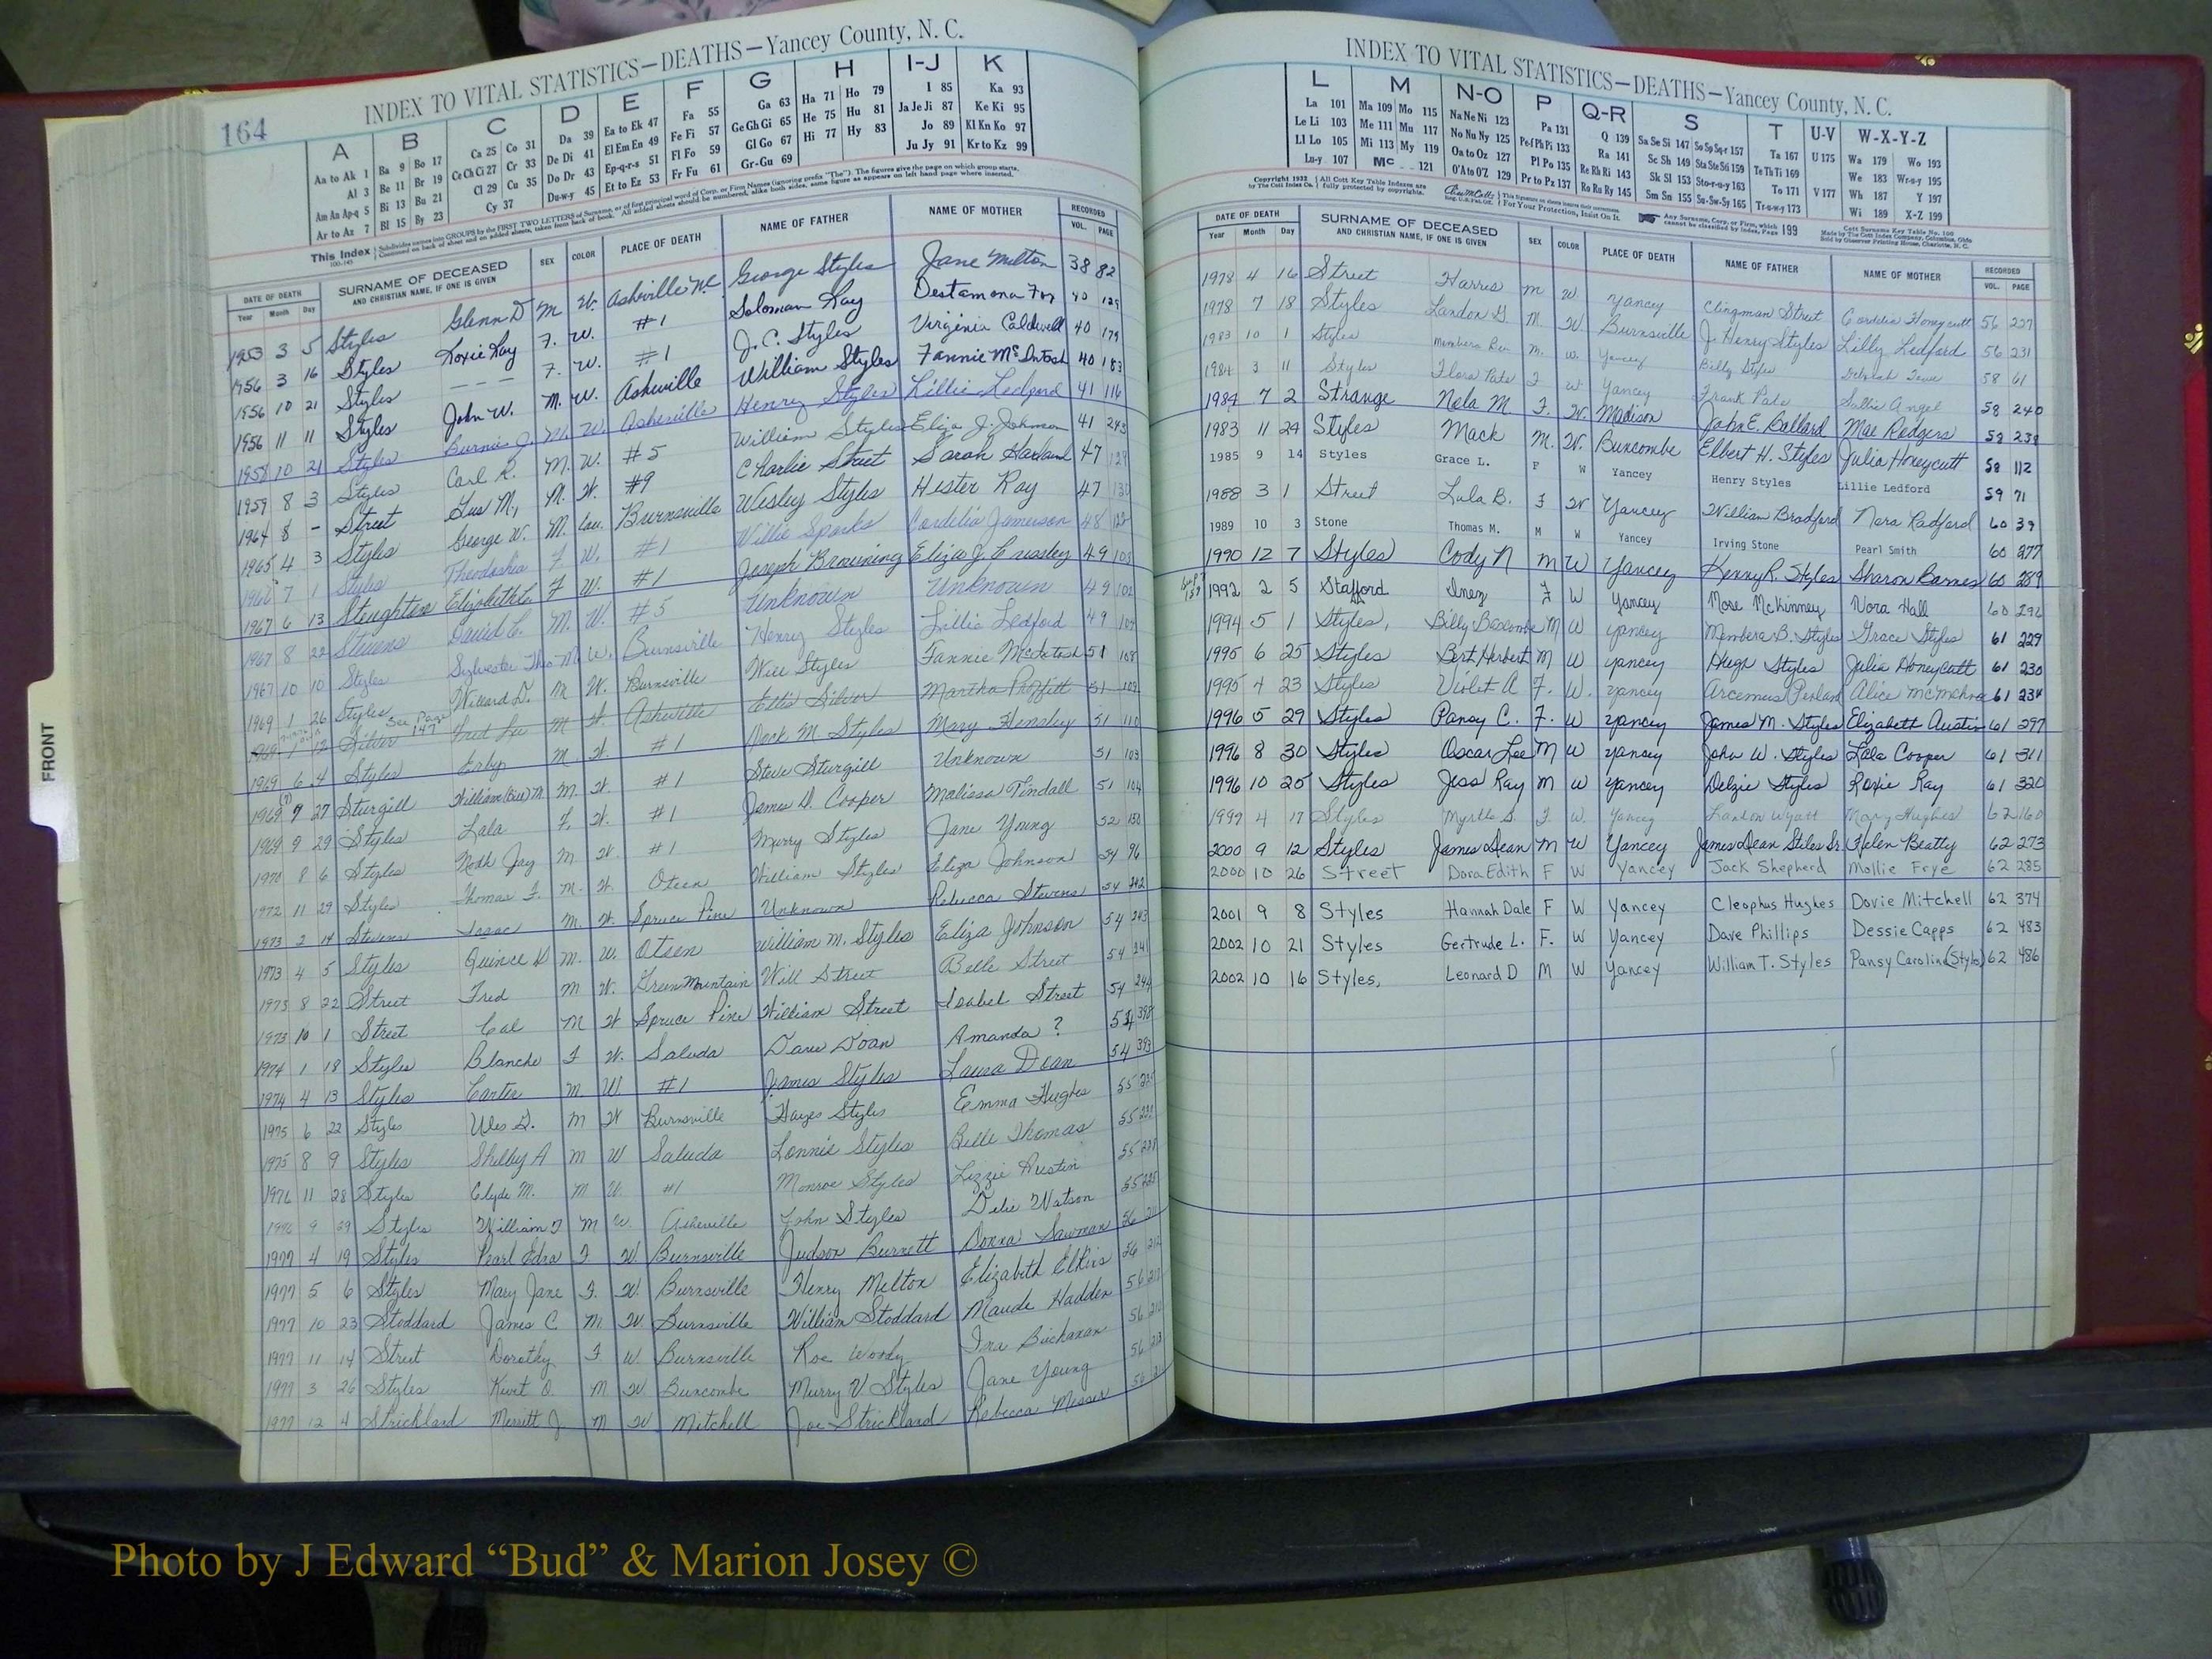 164
INDEX TO VITAL STATISTICS—DEATHS—Yancey County, N. C.
A B C D E F G H I-J K
Aa to Ak 1 Ba 9 Bo 17 Ca 25 Co 31 Da 39 Ea to Ek 47 Fa 55 Ga 63 Ha 71 Ho 79 I 85 Ka 93
Al 3 Be 11 Br 19 Ce Ch Ci 27 Cr 33 De Di 41 El Em En 49 Fe Fi 57 Ge Gh Gi 65 He 75 Hu 81 Ja Je Ji 87 Ke Ki 95
Am An Ap-q 5 Bi 13 Bu 21 Cl 29 Cu 35 Do Dr 43 Ep-q-r-s 51 Fl Fo 59 Gl Go 67 Hi 77 Hy 83 Jo 89 Kl Kn Ko 97
Ar to Az 7 Bl 15 By 23 Cy 37 Du-w-y 45 Et to Ez 53 Fr Fu 61 Gr-Gu 69 Ju Jy 91 Kr to Kz 99
This Index
DATE OF DEATH SURNAME OF DECEASED AND CHRISTIAN NAME, IF ONE IS GIVEN SEX COLOR PLACE OF DEATH NAME OF FATHER NAME OF MOTHER RECORDED
Year Month Day VOL. PAGE
1953 3 5 Styles Glenn D M W. Asheville N.C George Styles Jane Melton 38 82
1956 3 16 Styles Roxie Ray F. W. #1 Soloman Ray Destamona Fox 40 125
1956 10 21 Styles — — — F. W. #1 J.C. Styles Virginia Caldwell 40 179
1956 11 11 Styles John W. M. W. Asheville William Styles Fannie McIntosh 40 183
1958 10 21 Styles Burnie J. M. W. Asheville Henry Styles Lillie Ledford 41 116
1959 8 3 Styles Carl R. M. W. #5 William Styles Eliza J. Johnson 41 243
1964 8 – Street Gus M., M. W. #9 Charlie Street Sarah Harland 47 129
1965 4 3 Styles George W. M. Cau. Burnsville Wesley Styles Hester Ray 47 130
7 1 Styles Theodoshia F W. #1 Willie Sparks Cordelia Jamerson 48 122
1967 6 13 Stoughton Elizabeth F W. #1 Joseph Browning Eliza J. 49 103
1967 8 22 Stevens David C. M. W. #5 Unknown Unknown 49 102
1967 10 10 Styles Sylvester Tho M W. Burnsville Henry Styles Lillie Ledford 49 104
1969 1 26 Styles Willard D. M W. Burnsville Will Styles Fannie McIntosh 51 108
1969 1 12 Silver See Page 147 Fred Lee M W. Asheville Ellis Silver Martha Proffitt 51 109
1969 6 4 Styles Erby M. W. #1 Mack M. Styles Mary Hensley 51 110
1969 9 27 Sturgill William (Bill) M M. W. #1 Steve Sturgill Unknown 51 103
1969 9 29 Styles Lala F. W. #1 James D. Cooper Malissa Tindall 51 104
1970 8 6 Styles Noah Jay M. W. #1 Murry Styles Jane Young 52 150
1972 11 29 Styles Thomas F. M. W. Oteen William Styles Eliza Johnson 54 96
1973 2 14 Stevens Isaac M. W. Spruce Pine Unknown Rebecca Stevens 54 242
1973 4 5 Styles Quince D M. W. Oteen William M. Styles Eliza Johnson 54 243
1973 8 22 Street Fred M W. Green Mountain Will Street Belle Street 54 241
1973 10 1 Street Cal M W Spruce Pine William Street Isabel Street 54 244
1974 1 18 Styles Blanche F W. Saluda Dave Doan Amanda ? 54 398
1974 4 13 Styles Carter M. W. #1 James Styles Laura Dean 54 393
1975 6 22 Styles Wes D. M W Burnsville Hayes Styles Emma Hughes 55
1975 8 9 Styles Shelby A M W Saluda Lonnie Styles Belle Thomas 55
1976 11 28 Styles Clyde M. M W. #1 Monroe Styles Lizzie Austin 55
1976 9 29 Styles William T M W. Asheville John Styles Delie Watson 55
1977 4 19 Styles Pearl Edna F W. Burnsville Judson Burnett Donna 56
1977 5 6 Styles Mary Jane F. W. Burnsville Henry Melton Elizabeth Elkins 56
1977 10 23 Stoddard James C M W Burnsville William Stoddard Maude Hadden 56
1977 11 14 Street Dorothy F W Burnsville Roe Woody Ina Buchanan 56
1977 3 26 Styles Kurt O. M W Buncombe Murry V Styles Jane Young 56
1977 12 4 Strickland Merritt J. M W Mitchell Joe Strickland Rebecca Messer 56
INDEX TO VITAL STATISTICS—DEATHS—Yancey County, N. C.
L M N-O P Q-R S T U-V W-X-Y-Z
La 101 Ma 109 Mo 115 Na Ne Ni 123 Pa 131 Q 139 Sa Se Si 147 So Sp Sq-r 157 Ta 167 U 175 Wa 179 Wo 193
Le Li 103 Me 111 Mu 117 No Nu Ny 125 Pe-f Ph Pi 133 Ra 141 Sc Sh 149 Sta Ste Sti 159 Te Th Ti 169 We 183 Wr-u-y 195
Ll Lo 105 Mi 113 My 119 Oa to Oz 127 Pl Po 135 Re Rh Ri 143 Sk Sl 153 Sto-r-u-y 163 To 171 V 177 Wh 187 Y 197
Lu-y 107 Mc 121 O'A to O'Z 129 Pr to Pz 137 Ro Ru Ry 145 Sm Sn 155 Su-Sw-Sy 165 Tr-u-w-y 173 Wi 189 X-Z 199
DATE OF DEATH SURNAME OF DECEASED AND CHRISTIAN NAME, IF ONE IS GIVEN SEX COLOR PLACE OF DEATH NAME OF FATHER NAME OF MOTHER RECORDED
Year Month Day VOL. PAGE
1978 4 16 Street Harris M W. Yancey Clingman Street Cordelia Honeycutt 56 227
1978 7 18 Styles Landon G. M. W. Burnsville J. Henry Styles Lilly Ledford 56 231
1983 10 1 Styles Membera M. W. Yancey Billy Styles 58 61
1984 3 11 Styles Flora Pate F W Yancey Frank Pate Sallie Angel 58 240
1984 7 2 Strange Nola M F. W. Madison John E. Ballard Mae Rodgers 58 238
1983 11 24 Styles Mack M. W. Buncombe Elbert H. Styles Julia Honeycutt 58 112
1985 9 14 Styles Grace L. F W Yancey Henry Styles Lillie Ledford 59 71
1988 3 1 Street Lula B. F W Yancey William Bradford Nora Radford 60 39
1989 10 3 Stone Thomas M. M W Yancey Irving Stone Pearl Smith 60 277
1990 12 7 Styles Cody N M W Yancey Kenny R. Styles Sharon Barnes 60 289
1992 2 5 Stafford Inez F W Yancey Mose McKinney Nora Hall 60 296
1994 5 1 Styles, Billy Bascombe M W Yancey Membera B. Styles Grace Styles 61 229
1995 6 25 Styles Bert Herbert M W Yancey Hugh Styles Julia Honeycutt 61 230
1995 4 23 Styles Violet A F. W. Yancey Arcemus Penland Alice McMahan 61 234
1996 5 29 Styles Pansy C. F. W Yancey James M. Styles Elizabeth Austin 61 297
1996 8 30 Styles Oscar Lee M W Yancey John W. Styles Lala Cooper 61 311
1996 10 25 Styles Jess Ray M W Yancey Delzie Styles Roxie Ray 61 320
1999 4 17 Styles Myrtle S. F. W. Yancey Landon Wyatt Mary Hughes 62 160
2000 9 12 Styles James Dean M W Yancey James Dean Stiles Sr. Helen Beatty 62 273
2000 10 26 Street Dora Edith F W Yancey Jack Shepherd Mollie Frye 62 285
2001 9 8 Styles Hannah Dale F W Yancey Cleophus Hughes Dovie Mitchell 62 374
2002 10 21 Styles Gertrude L. F. W Yancey Dave Phillips Dessie Capps 62 483
2002 10 16 Styles, Leonard D M W Yancey William T. Styles Pansy Caroline (Styles) 62 486
FRONT
Photo by J Edward “Bud” & Marion Josey ©